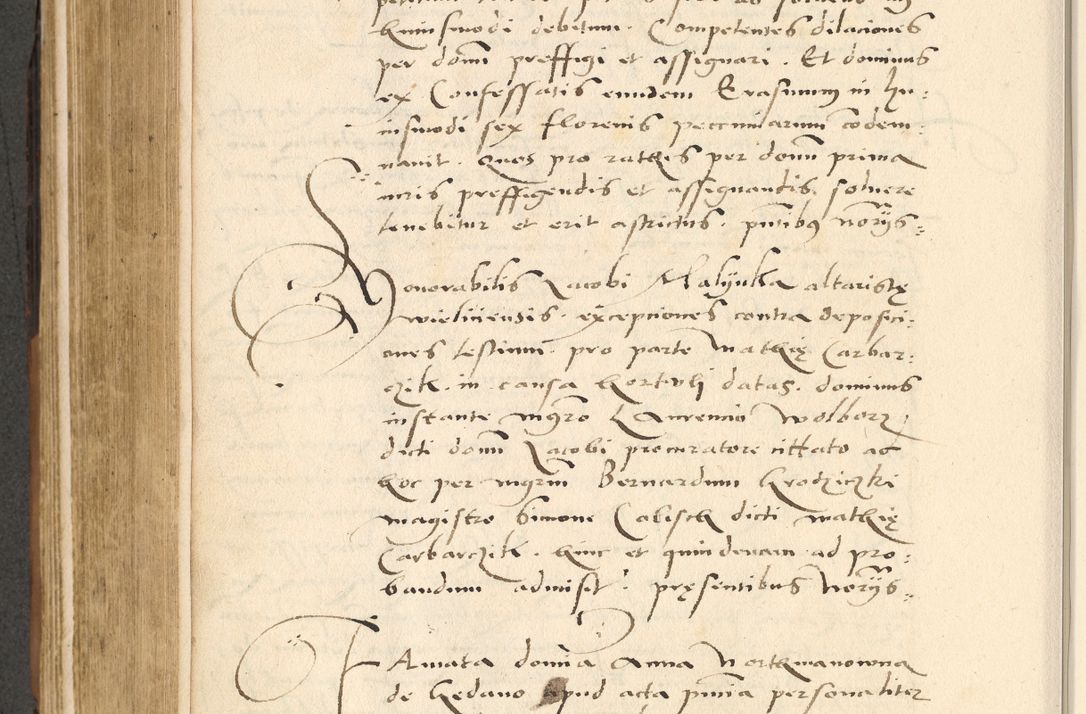 huiusmodi debitum. Competentes dilaciones
per domi preffigi et assignari. Et dominus
ex Confessatis eundem Erasmum in hu:
iusmodi sex florenis peccuniarum codem:
navit. Quos pro rathis per domi prima
iuris preffigendis et assignandis. solvere
tenebitur et erit astrictus. pntibus norijs:
Honorabilis Jacobi Malijnka altaristę
wieliciensis. exceptiones contra deposici:
ones testium. pro parte Mathię Carbar:
czik. in causa hortuli datas. dominus
instante mgro Laurencio Wolborz
dicti domi Jacobi procuratore cittato ad
hoc per mgrm Bernardum Grodziczki
magistro Simone Calisch dicti Mathię
Carbarczik. hinc et quindenam ad pro:
bandum admisit. pręsentibus norijs:
Famata domina Anna Northmanowna
de Gedano apud acta pntia personaliter